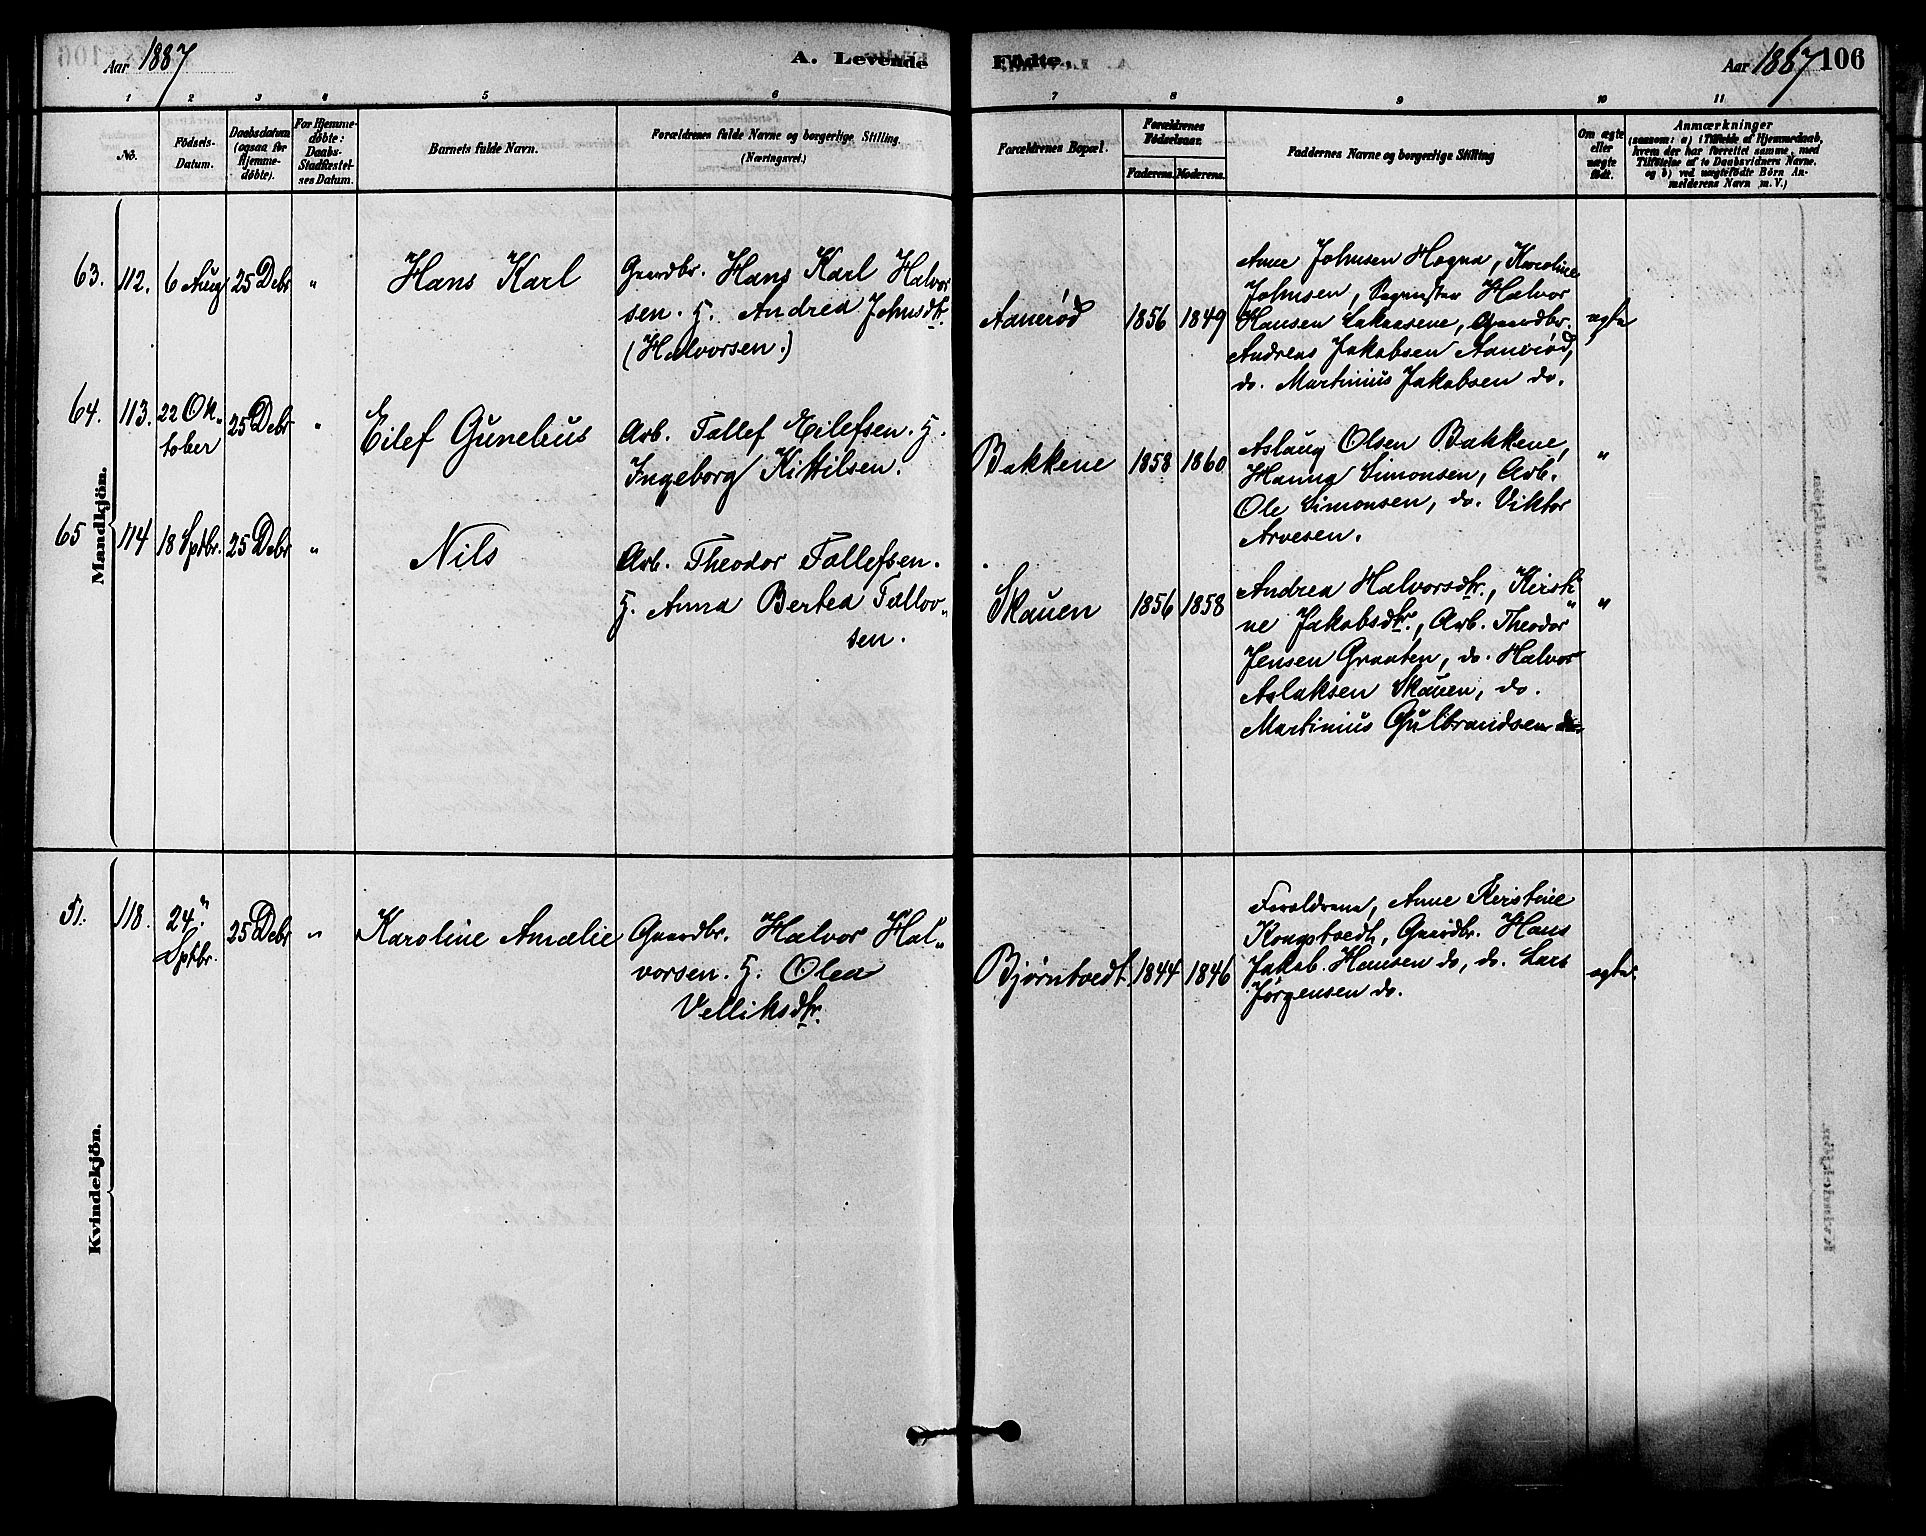 Aar 1887
A. Levende Födte.
Aar 1887 106
1 2 3 4 5 6 7 8 9 10 11
No.
Födsels-
Datum.
Daabsdatum
(ogsaa for
Hjemme-
döbte).
For Hjemme-
döbte:
Daabs-
Stadfæstel-
ses Datum.
Barnets fulde Navn.
Forældrenes fulde Navne og borgerlige Stilling.
(Næringsvei.)
Forældrenes Bopæl.
Forældrenes
Födselsaar.
Faderens. Moderens.
Faddernes Navne og borgerlige Stilling
Om ægte
eller
uægte
födt.
Anmærkninger
(saasom: a) i Tilfælde af Hjemmedaab,
hvem der har forrettet samme, med
Tilföielse af to Daabsvidners Navne,
og b) ved uægtefödte Börn An-
melderens Navn m. V.)
Mandkjön.
63. 112. 6 Aug 25 Debr "
Hans Karl
Gaardbr. Hans Karl Halvor
sen. H. Andrea Johnsdtr.
(Halvorsen.)
Aanerød 1856 1849
Anne Johnsen Hogna, Karoline
Johnsen, Halvor
Hansen Gaardbr.
Andreas Jakobsen Aanerød,
do. Martinius Jakobsen do.
ægte
64. 113. 22 Ok-
tober 25 Debr "
Eilef Gunelius
Arb. Tallef Eilefsen. H.
Ingeborg Kittilsen.
Bakkene 1858 1860
Aslaug Olsen Bakkene,
Hanna Simonsen, Arb.
Ole Simonsen, do. Viktor
Arvesen.
"
65 114 18 Sptbr. 25 Debr "
Nils
Arb. Theodor Tallefsen.
H. Anna Bertea Tallov"
sen.
Skauen 1856 1858
Andrea Halvorsdtr., Kirsti"
ne Jakobsdtr., Arb. Theodor
Jensen Graaten, do. Halvor
Aslaksen Skauen, do.
Martinius Gulbrandsen do.
"
Kvindekjön.
51. 118. 24de
Sptbr. 25 Debr "
Karoline Amalie
Gaardbr. Halvor Hal"
vorsen. H. Olea
Velliksdtr.
Bjørntvedt 1844 1846
Forældrene, Anne Kirstine
Kongstvedt, Gaardbr. Hans
Jakob Hansen do, do. Lars
Jørgensen do.
ægte.